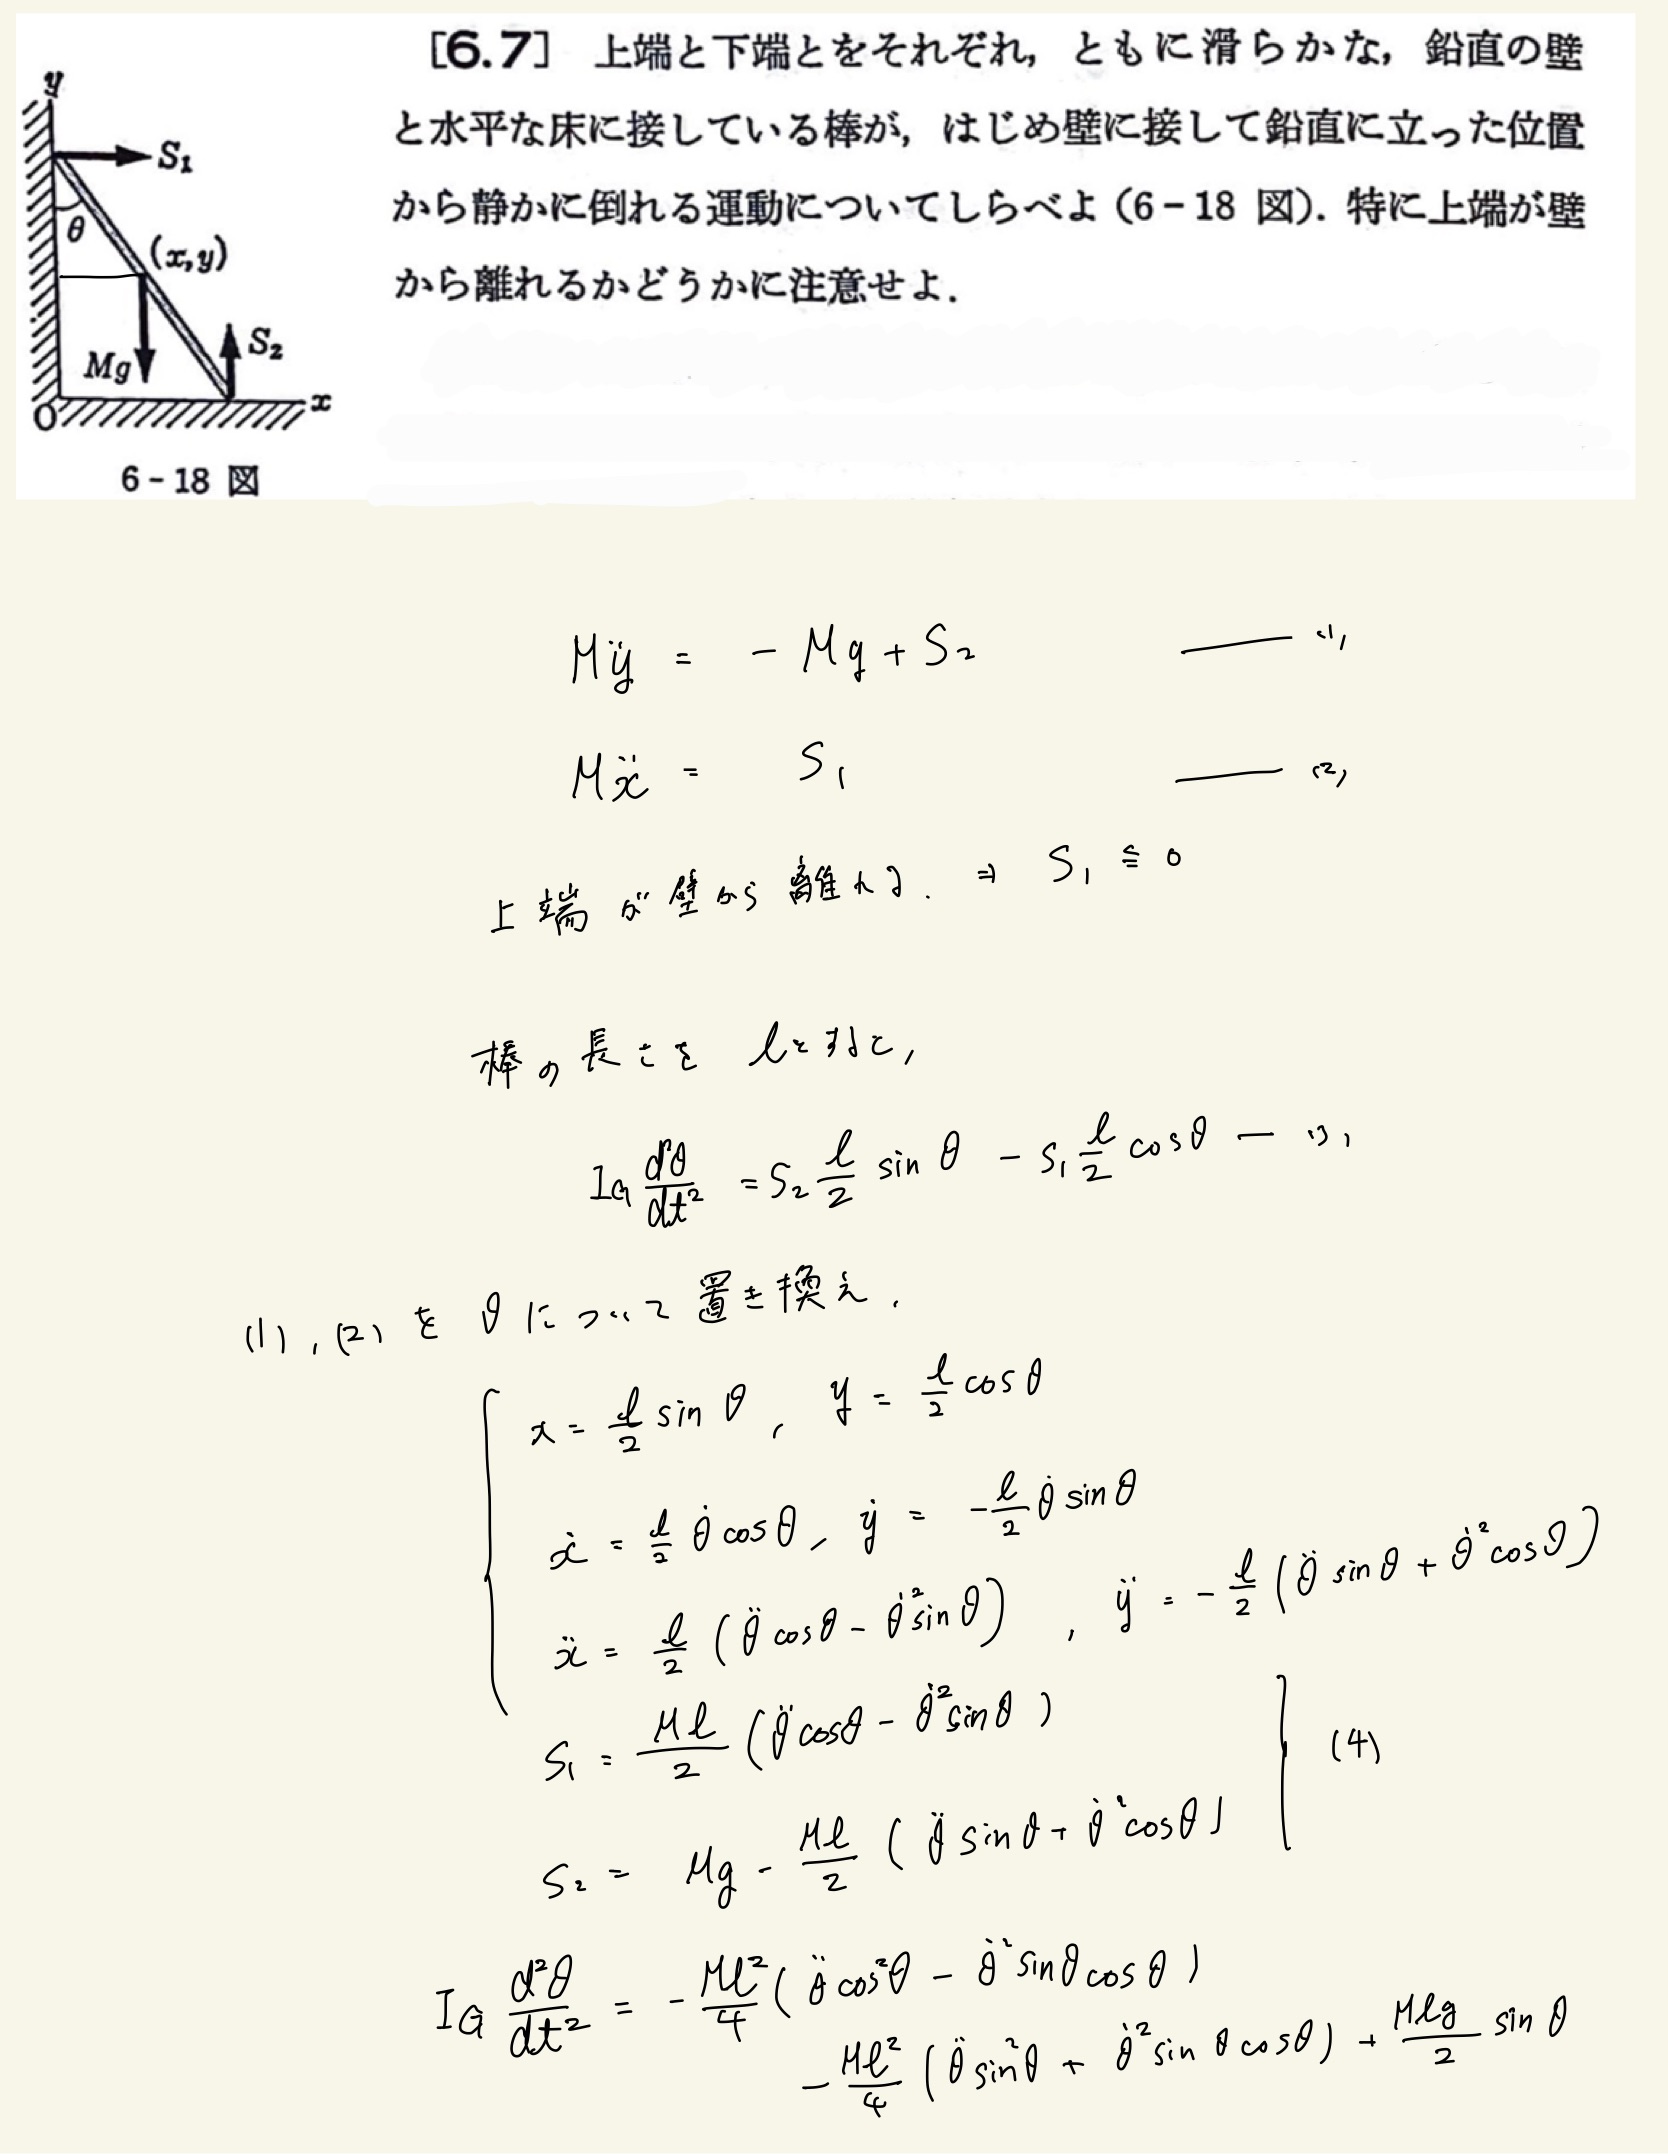 [6.7] 上端と下端とをそれぞれ，ともに滑らかな，鉛直の壁
と水平な床に接している棒が，はじめ壁に接して鉛直に立った位置
から静かに倒れる運動についてしらべよ（6-18 図）．特に上端が壁
から離れるかどうかに注意せよ．
y
S₁
θ
(x,y)
S₂
Mg
O
x
6-18 図
Mÿ = - Mg + S₂ —— (1)
Mẍ = S₁ —— (2)
上端が壁から離れる. ⇒ S₁ ≦ 0
棒の長さを l とすると,
I_G d²θ/dt² = S₂ l/2 sin θ - S₁ l/2 cosθ — (3)
(1), (2) を θ について置き換え.
x = l/2 sin θ, y = l/2 cos θ
ẋ = l/2 θ̇ cos θ, ẏ = -l/2 θ̇ sin θ
ẍ = l/2 (θ̈ cosθ - θ̇² sin θ), ÿ = - l/2 (θ̈ sin θ + θ̇² cos θ)
S₁ = Ml/2 (θ̈ cosθ - θ̇² sin θ)
(4)
S₂ = Mg - Ml/2 (θ̈ sin θ + θ̇² cos θ)
I_G d²θ/dt² = - Ml²/4 (θ̈ cos²θ - θ̇² sin θ cos θ)
- Ml²/4 (θ̈ sin²θ + θ̇² sin θ cos θ) + Mlg/2 sin θ